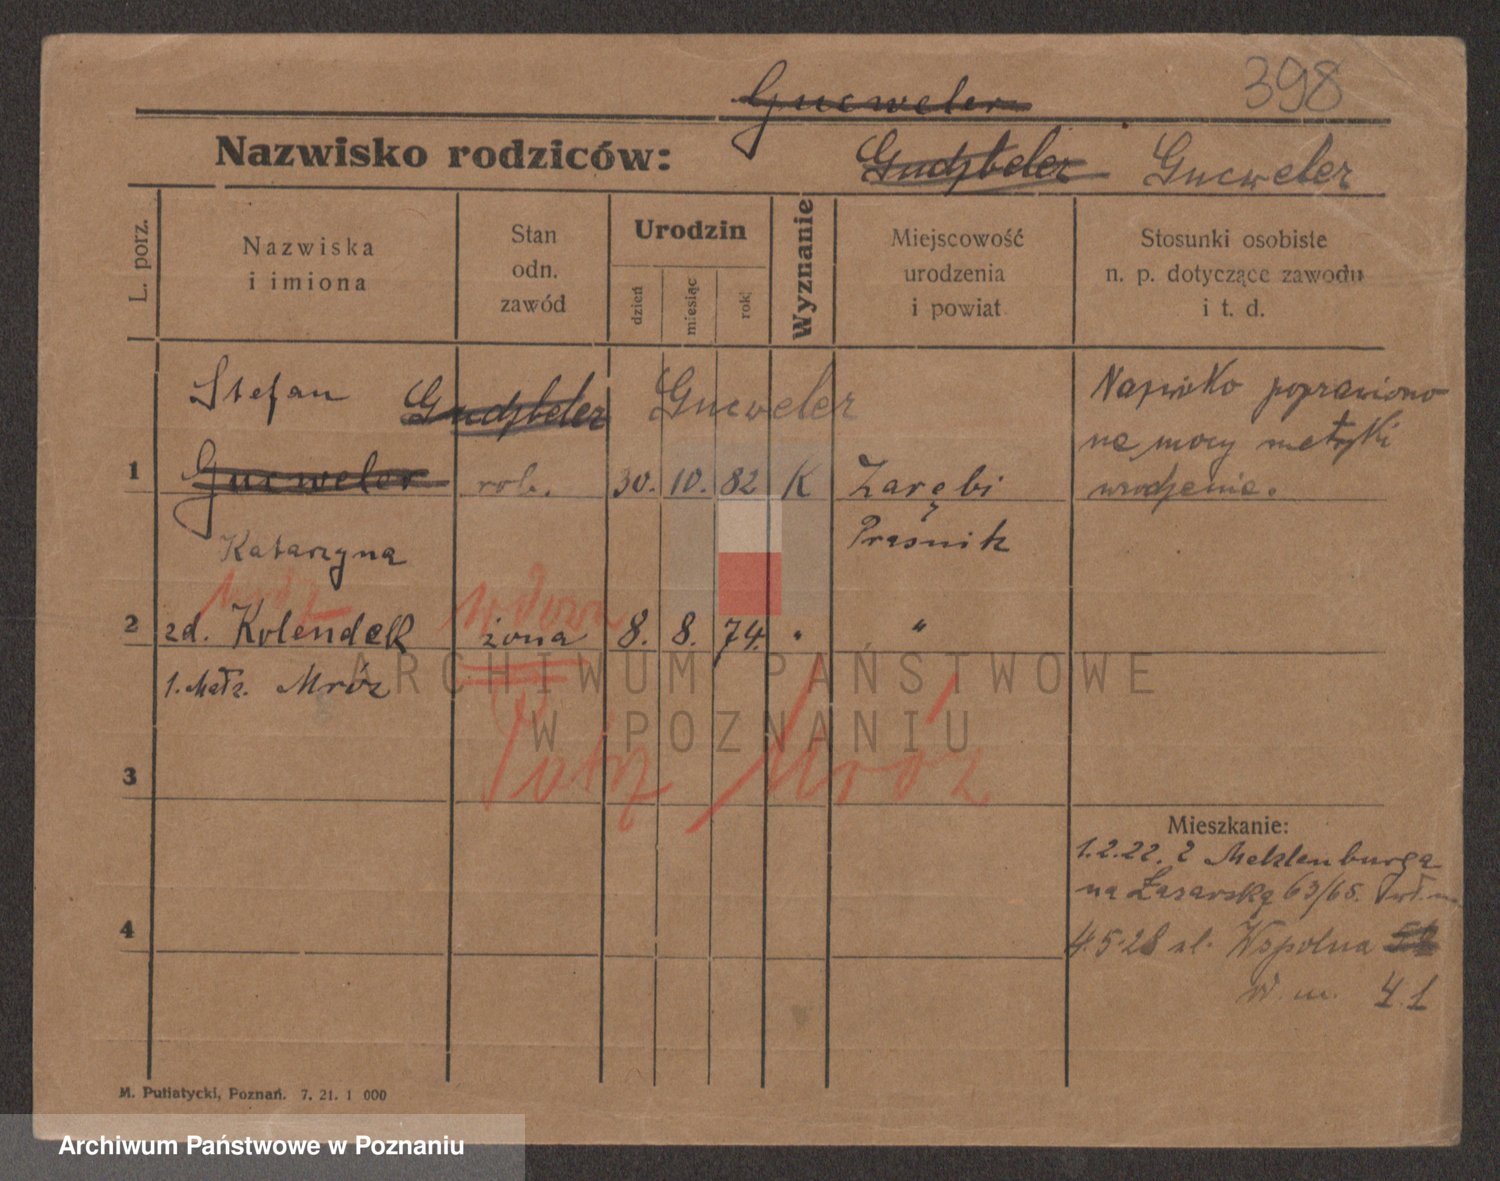 398
Gucweler
Nazwisko rodziców:
Gudzbeler Gucweler
L. porz.
Nazwiska
i imiona
Stan
odn.
zawód
Urodzin
dzień
miesiąc
rok
Wyznanie
Miejscowość
urodzenia
i powiat
Stosunki osobiste
n. p. dotyczące zawodu
i t. d.
Stefan Gudzbeler Gucweler
1 Gucweler rob. 30. 10. 82 K Zarębi
Prasnik
Nazwisko poprawiono
na mocy metryki
urodzenia.
Katarzyna
Mróz wdowa
2 zd. Kolendek żona 8. 8. 74. " "
1. Małż. Mróz
ARCHIWUM PAŃSTWOWE
W POZNANIU
Patrz Mróz
3
Mieszkanie:
1.2.22. z Meklenburga
na Łazarską 63/65.
4
4.5.28 ul. Wspólna
W. m. 41
M. Putiatycki, Poznań. 7. 21. 1 000
Archiwum Państwowe w Poznaniu